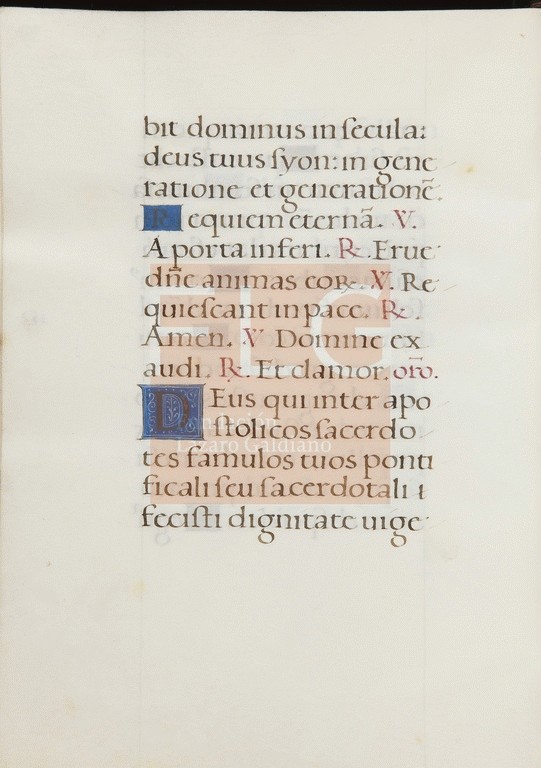 bit dominus in ſecula:
deus tuus ſyon: in gene
ratione et generationē.
Requiem eternā. V.
A porta inferi. R. Erue
dn̄e animas eoꝝ. V. Re
quieſcant in pace. R.
Amen. V Domine ex
audi. R. Et clamor. oro̅.
DEus qui inter apo
ſtolicos ſacerdo
tes famulos tuos ponti
ficali ſeu ſacerdotali
feciſti dignitate uige
FLG
Fundación
Lázaro Galdiano